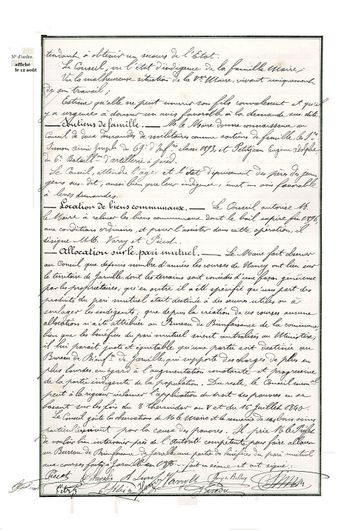 N° d'ordre
affiché
le 12 août
tendant à obtenir un secours de l'Etat.
Le Conseil, vu l'état d'indigence de la famille
Vu la malheureuse situation de la Vve Maire, vivant uniquement
de son travail;
Estime qu'elle ne peut nourrir son fils convenablement et qu'il
y a urgence à donner un avis favorable à la demande
Soutiens de famille. — M. le Maire donne connaissance au
Conseil de deux demandes de militaires comme soutiens de famille le Sr
Simon Joseph du 69e d'Infrie classe 1893 et Petitjean Eugène
6e Bataillon d'artillerie à pied.
Le Conseil, attendu l'âge et l'état d'épuisement des pères des jeunes
gens sus-dit, aussi bien que leur indigence, émet un avis favorable
à leur demande.
Location de biens communaux. — Le Conseil autorise M.
le Maire à relouer les biens communaux dont le bail expire fin 1896
aux conditions ordinaires, et pour l'assister dans cette opération, il
désigne MM. Very et Picot.
Allocation sur le pari mutuel. — Le Maire fait observer
au Conseil que depuis nombre d'années les courses de Nancy ont lieu sur
le territoire de Jarville dont les terrains sont concédés d'une façon précieuse
par les propriétaires, que en outre il a été spécifié qu'une part des
produits du pari mutuel était destinée à des œuvres utiles ou à
soulager les indigents, que depuis la création de ces courses aucune
allocation n'a été attribuée au Bureau de Bienfaisance de la commune
bien que les bénéfices du pari mutuel soient centralisés au Ministère,
il lui paraît juste et équitable qu'une partie soit destinée au
Bureau de Bienf. de Jarville, qui supporte des charges de plus en
plus lourdes, eu égard à l'augmentation constante et progressive
de la partie indigente de la population. Du reste, le Conseil municipal
peut à la rigueur réclamer l'application du droit des pauvres en se
basant sur les lois du 8 thermidor an V et du 16 juillet 1840.
Le Conseil goûte les observations de M. le Maire et le remercie de ses bons soins
pour la cause des pauvres. Il prie M. le Préfet
de vouloir bien intervenir près de l'autorité compétente pour faire allouer
au Bureau de Bienfaisance de Jarville une partie des bénéfices du pari mutuel
aux courses de Jarville en 1896. Fait en séance et ont signé.
Picot